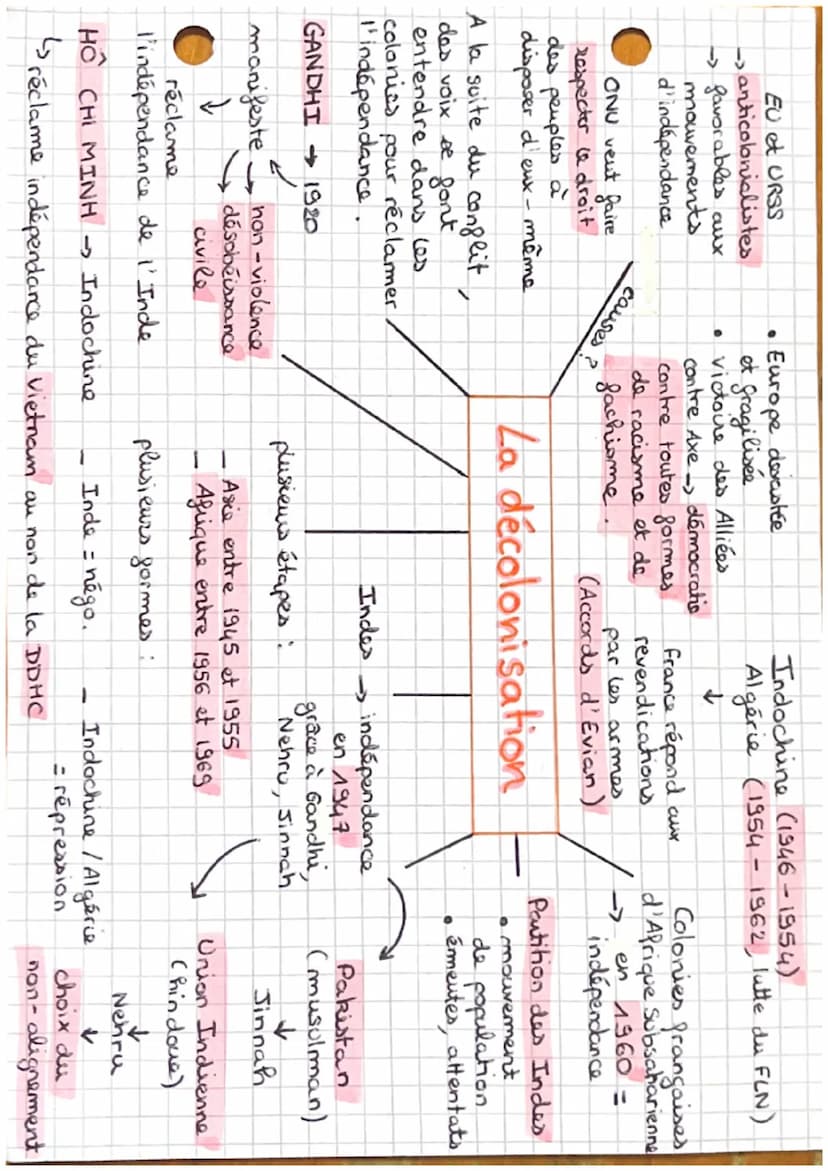 La décolonisation
causes ?
EU et URSS
→ anticolonialistes
→ favorables aux
mouvements
d'indépendance
ONU veut faire
respecter le droit
des peuples à
disposer d'eux-même
• Europe dévastée
et fragilisée
• victoire des Alliées
contre Axe → démocratie
contre toutes formes
de racisme et de
fachisme.
Indochine (1946-1954)
Algérie (1954-1962, lutte du FLN)
↓
France répond aux
revendications
par les armes
(Accords d'Evian)
Colonies françaises
d'Afrique subsaharienne
→ en 1960 =
indépendance
A la suite du conflit,
des voix se font
entendre dans les
colonies pour réclamer
l'indépendance.
GANDHI → 1920
manifeste → non-violence
→ désobéissance
civile
réclame
l'indépendance de l'Inde
HÔ CHI MINH → Indochine
↳ réclame indépendance du Vietnam au non de la DDHC
plusieurs étapes :
– Asie entre 1945 et 1955
– Afrique entre 1956 et 1969
plusieurs formes :
– Inde = négo.
– Indochine / Algérie
= répression
Indes → indépendance
en 1947
grâce à Gandhi,
Nehru, Jinnah
Partition des Indes
• mouvement
de population
• émeutes, attentats
Pakistan
(musulman)
↓
Jinnah
Union Indienne
(hindoue)
↓
Nehru
↓
choix du
non-alignement